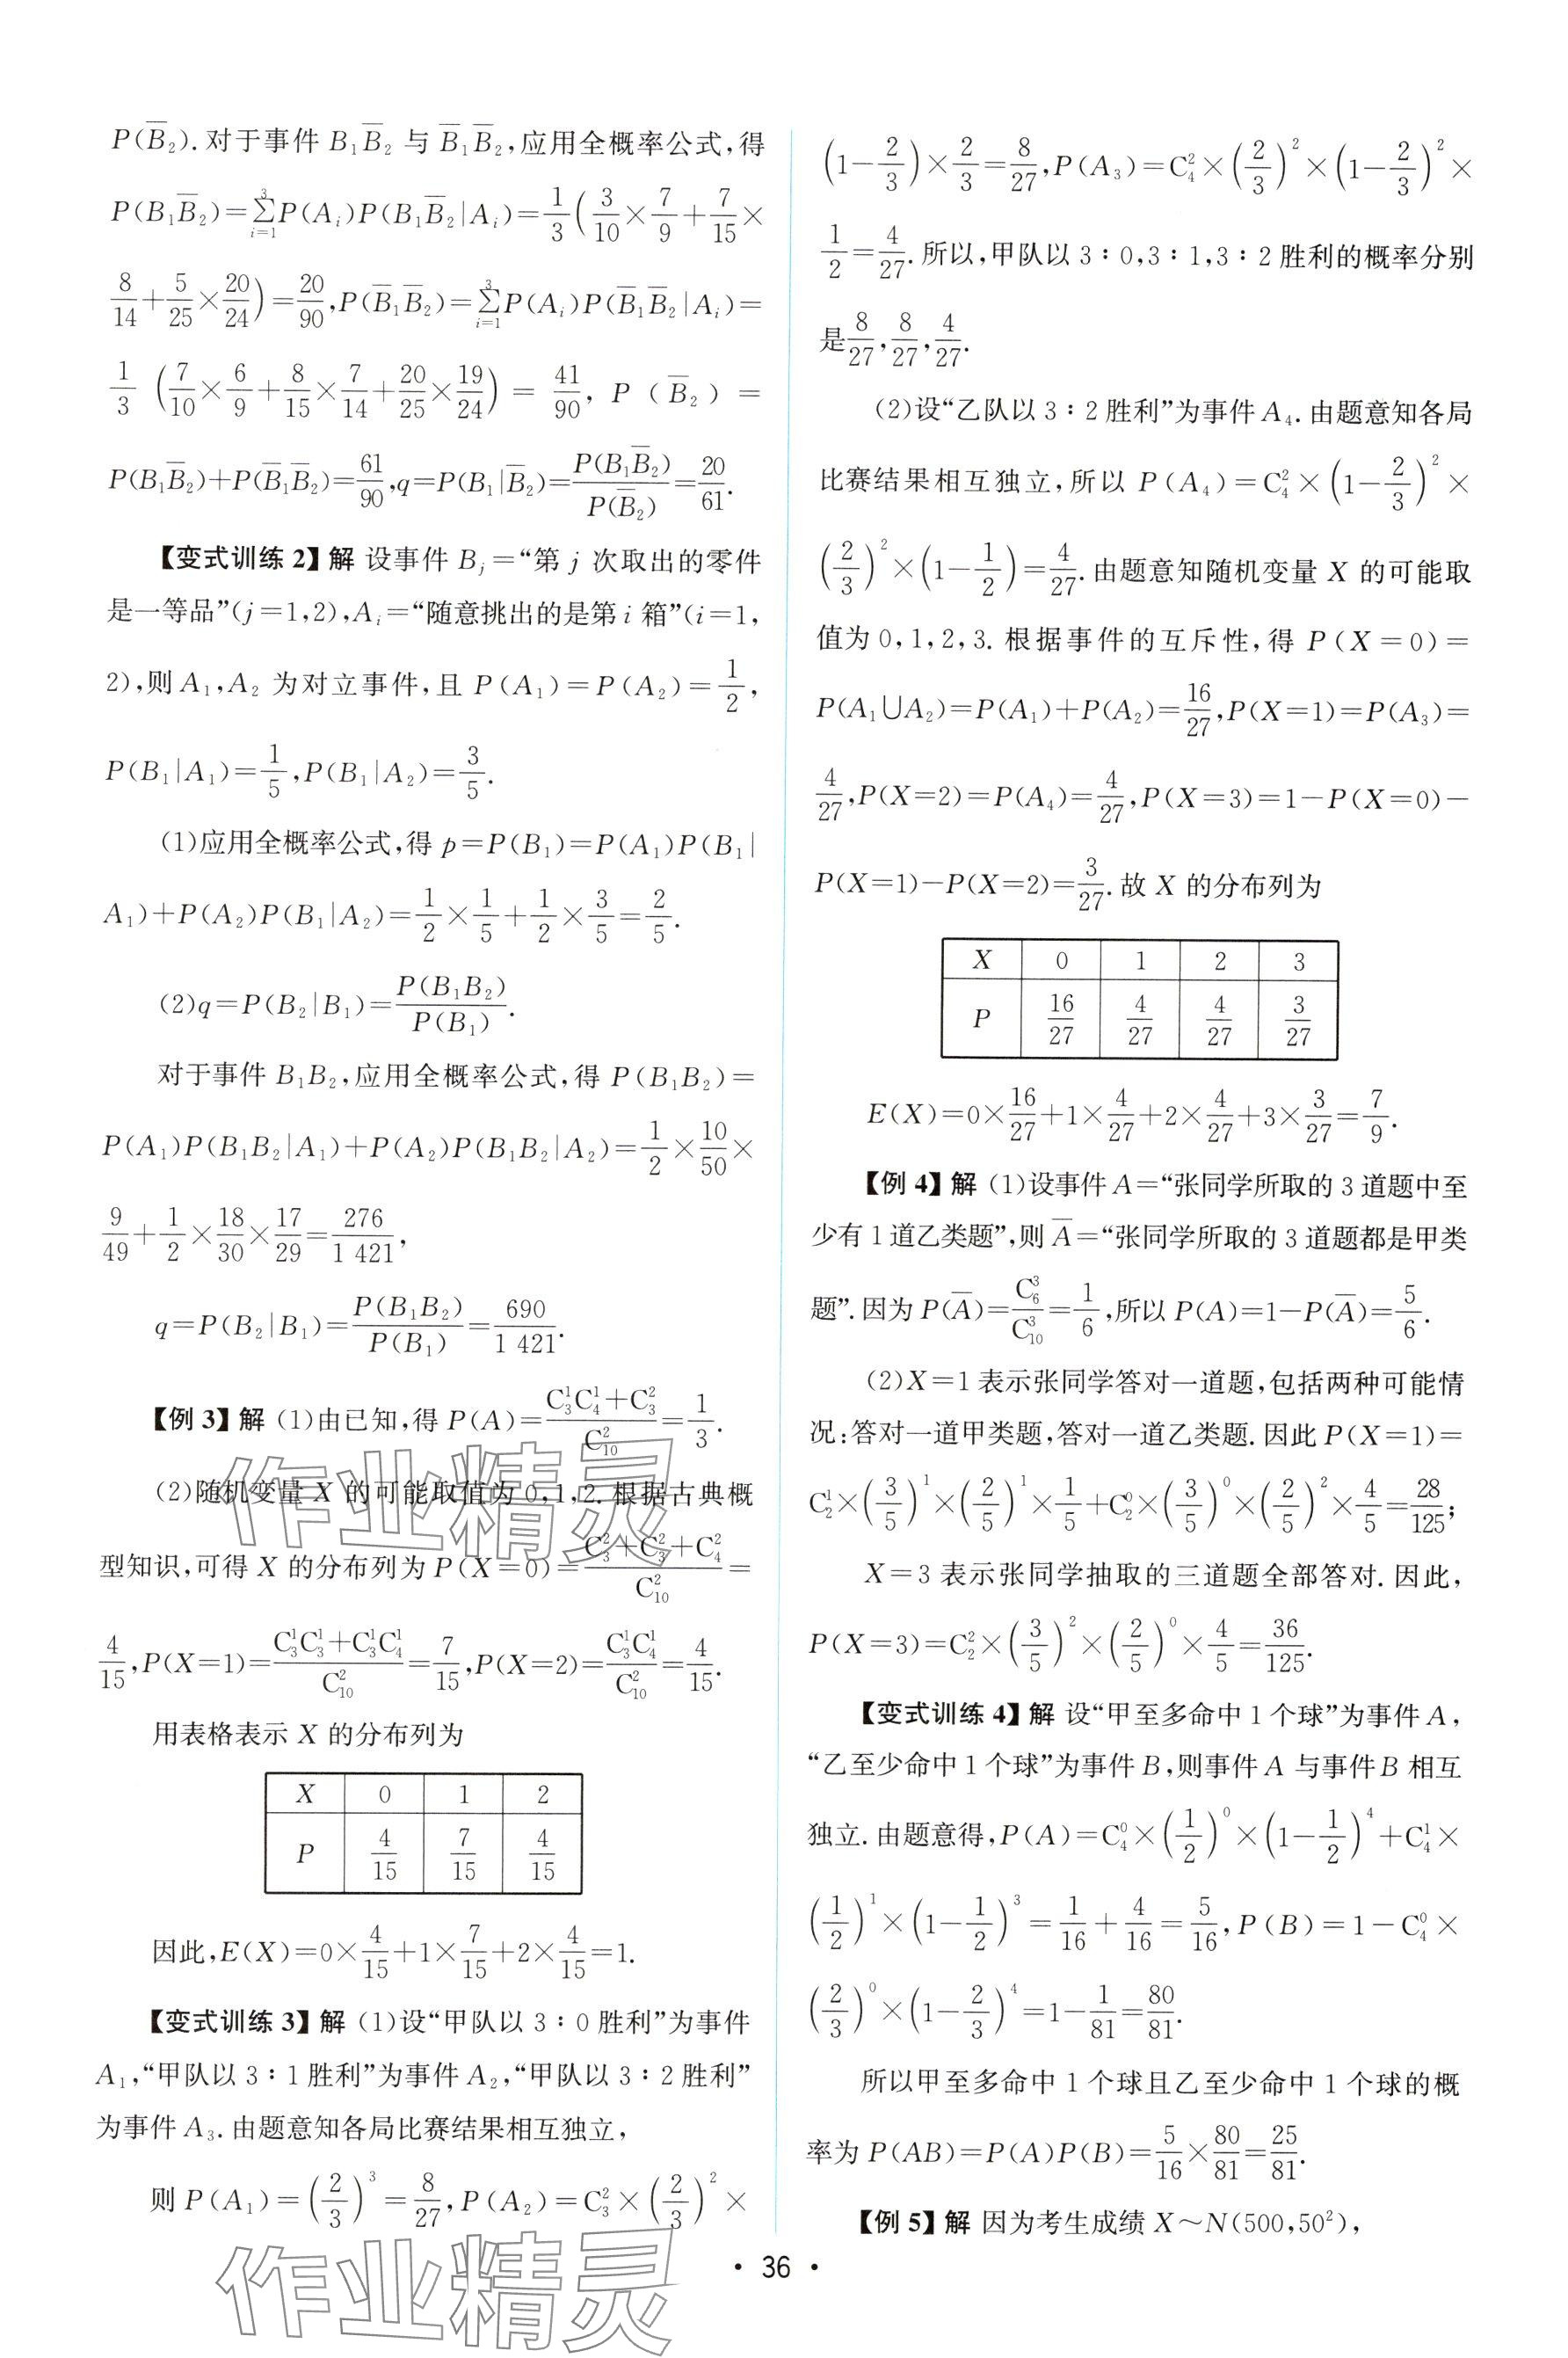 P(B̅₂).对于事件 B₁B̅₂ 与 B̅₁B̅₂,应用全概率公式,得
P(B₁B̅₂)=∑_{i=1}^{3}P(Aᵢ)P(B₁B̅₂|Aᵢ)=1/3(3/10×7/9+7/15×
8/14+5/25×20/24)=20/90,P(B̅₁B̅₂)=∑_{i=1}^{3}P(Aᵢ)P(B̅₁B̅₂|Aᵢ)=
1/3(7/10×6/9+8/15×7/14+20/25×19/24)=41/90,P(B̅₂)=
P(B₁B̅₂)+P(B̅₁B̅₂)=61/90,q=P(B₁|B̅₂)=P(B₁B̅₂)/P(B̅₂)=20/61.
【变式训练2】解 设事件 Bⱼ=“第 j 次取出的零件
是一等品”(j=1,2),Aᵢ=“随意挑出的是第 i 箱”(i=1,
2),则 A₁,A₂ 为对立事件,且 P(A₁)=P(A₂)=1/2,
P(B₁|A₁)=1/5,P(B₁|A₂)=3/5.
(1)应用全概率公式,得 p=P(B₁)=P(A₁)P(B₁|
A₁)+P(A₂)P(B₁|A₂)=1/2×1/5+1/2×3/5=2/5.
(2)q=P(B₂|B₁)=P(B₁B₂)/P(B₁).
对于事件 B₁B₂,应用全概率公式,得 P(B₁B₂)=
P(A₁)P(B₁B₂|A₁)+P(A₂)P(B₁B₂|A₂)=1/2×10/50×
9/49+1/2×18/30×17/29=276/1 421,
q=P(B₂|B₁)=P(B₁B₂)/P(B₁)=690/1 421.
【例 3】解 (1)由已知,得 P(A)=(C₃¹C₄¹+C₃²)/C₁₀²=1/3.
(2)随机变量 X 的可能取值为 0,1,2.根据古典概
型知识,可得 X 的分布列为 P(X=0)=(C₃²+C₃²+C₄²)/C₁₀²=
4/15,P(X=1)=(C₃¹C₃¹+C₃¹C₄¹)/C₁₀²=7/15,P(X=2)=C₃¹C₄¹/C₁₀²=4/15.
用表格表示 X 的分布列为
X 0 1 2
P 4/15 7/15 4/15
因此,E(X)=0×4/15+1×7/15+2×4/15=1.
【变式训练3】解 (1)设“甲队以 3∶0 胜利”为事件
A₁,“甲队以 3∶1 胜利”为事件 A₂,“甲队以 3∶2 胜利”
为事件 A₃.由题意知各局比赛结果相互独立,
则 P(A₁)=(2/3)³=8/27,P(A₂)=C₃²×(2/3)²×
(1-2/3)×2/3=8/27,P(A₃)=C₄²×(2/3)²×(1-2/3)²×
1/2=4/27.所以,甲队以 3∶0,3∶1,3∶2 胜利的概率分别
是8/27,8/27,4/27.
(2)设“乙队以 3∶2 胜利”为事件 A₄.由题意知各局
比赛结果相互独立,所以 P(A₄)=C₄²×(1-2/3)²×
(2/3)²×(1-1/2)=4/27.由题意知随机变量 X 的可能取
值为 0,1,2,3.根据事件的互斥性,得 P(X=0)=
P(A₁∪A₂)=P(A₁)+P(A₂)=16/27,P(X=1)=P(A₃)=
4/27,P(X=2)=P(A₄)=4/27,P(X=3)=1-P(X=0)-
P(X=1)-P(X=2)=3/27.故 X 的分布列为
X 0 1 2 3
P 16/27 4/27 4/27 3/27
E(X)=0×16/27+1×4/27+2×4/27+3×3/27=7/9.
【例 4】解 (1)设事件 A=“张同学所取的 3 道题中至
少有 1 道乙类题”,则 A̅=“张同学所取的 3 道题都是甲类
题”.因为 P(A̅)=C₆³/C₁₀³=1/6,所以 P(A)=1-P(A̅)=5/6.
(2)X=1 表示张同学答对一道题,包括两种可能情
况:答对一道甲类题,答对一道乙类题.因此 P(X=1)=
C₂¹×(3/5)¹×(2/5)¹×1/5+C₂⁰×(3/5)⁰×(2/5)²×4/5=28/125;
X=3 表示张同学抽取的三道题全部答对.因此,
P(X=3)=C₂²×(3/5)²×(2/5)⁰×4/5=36/125.
【变式训练4】解 设“甲至多命中 1 个球”为事件 A,
“乙至少命中 1 个球”为事件 B,则事件 A 与事件 B 相互
独立.由题意得,P(A)=C₄⁰×(1/2)⁰×(1-1/2)⁴+C₄¹×
(1/2)¹×(1-1/2)³=1/16+4/16=5/16,P(B)=1-C₄⁰×
(2/3)⁰×(1-2/3)⁴=1-1/81=80/81.
所以甲至多命中 1 个球且乙至少命中 1 个球的概
率为 P(AB)=P(A)P(B)=5/16×80/81=25/81.
【例 5】解 因为考生成绩 X～N(500,50²),
· 36 ·
作业精灵
作业精灵